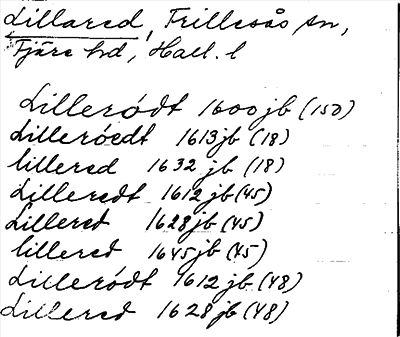 Lillared, Frillesås sn,
Fjäre hd, Hall. l
Lillerödt 1600 jb (150)
Lilleröedt 1613 jb (18)
lillered 1632 jb (18)
Lilleredt 1612 jb (45)
Lillered 1628 jb (45)
lillered 1645 jb (45)
Lillerödt 1612 jb (48)
Lillered 1628 jb (48)